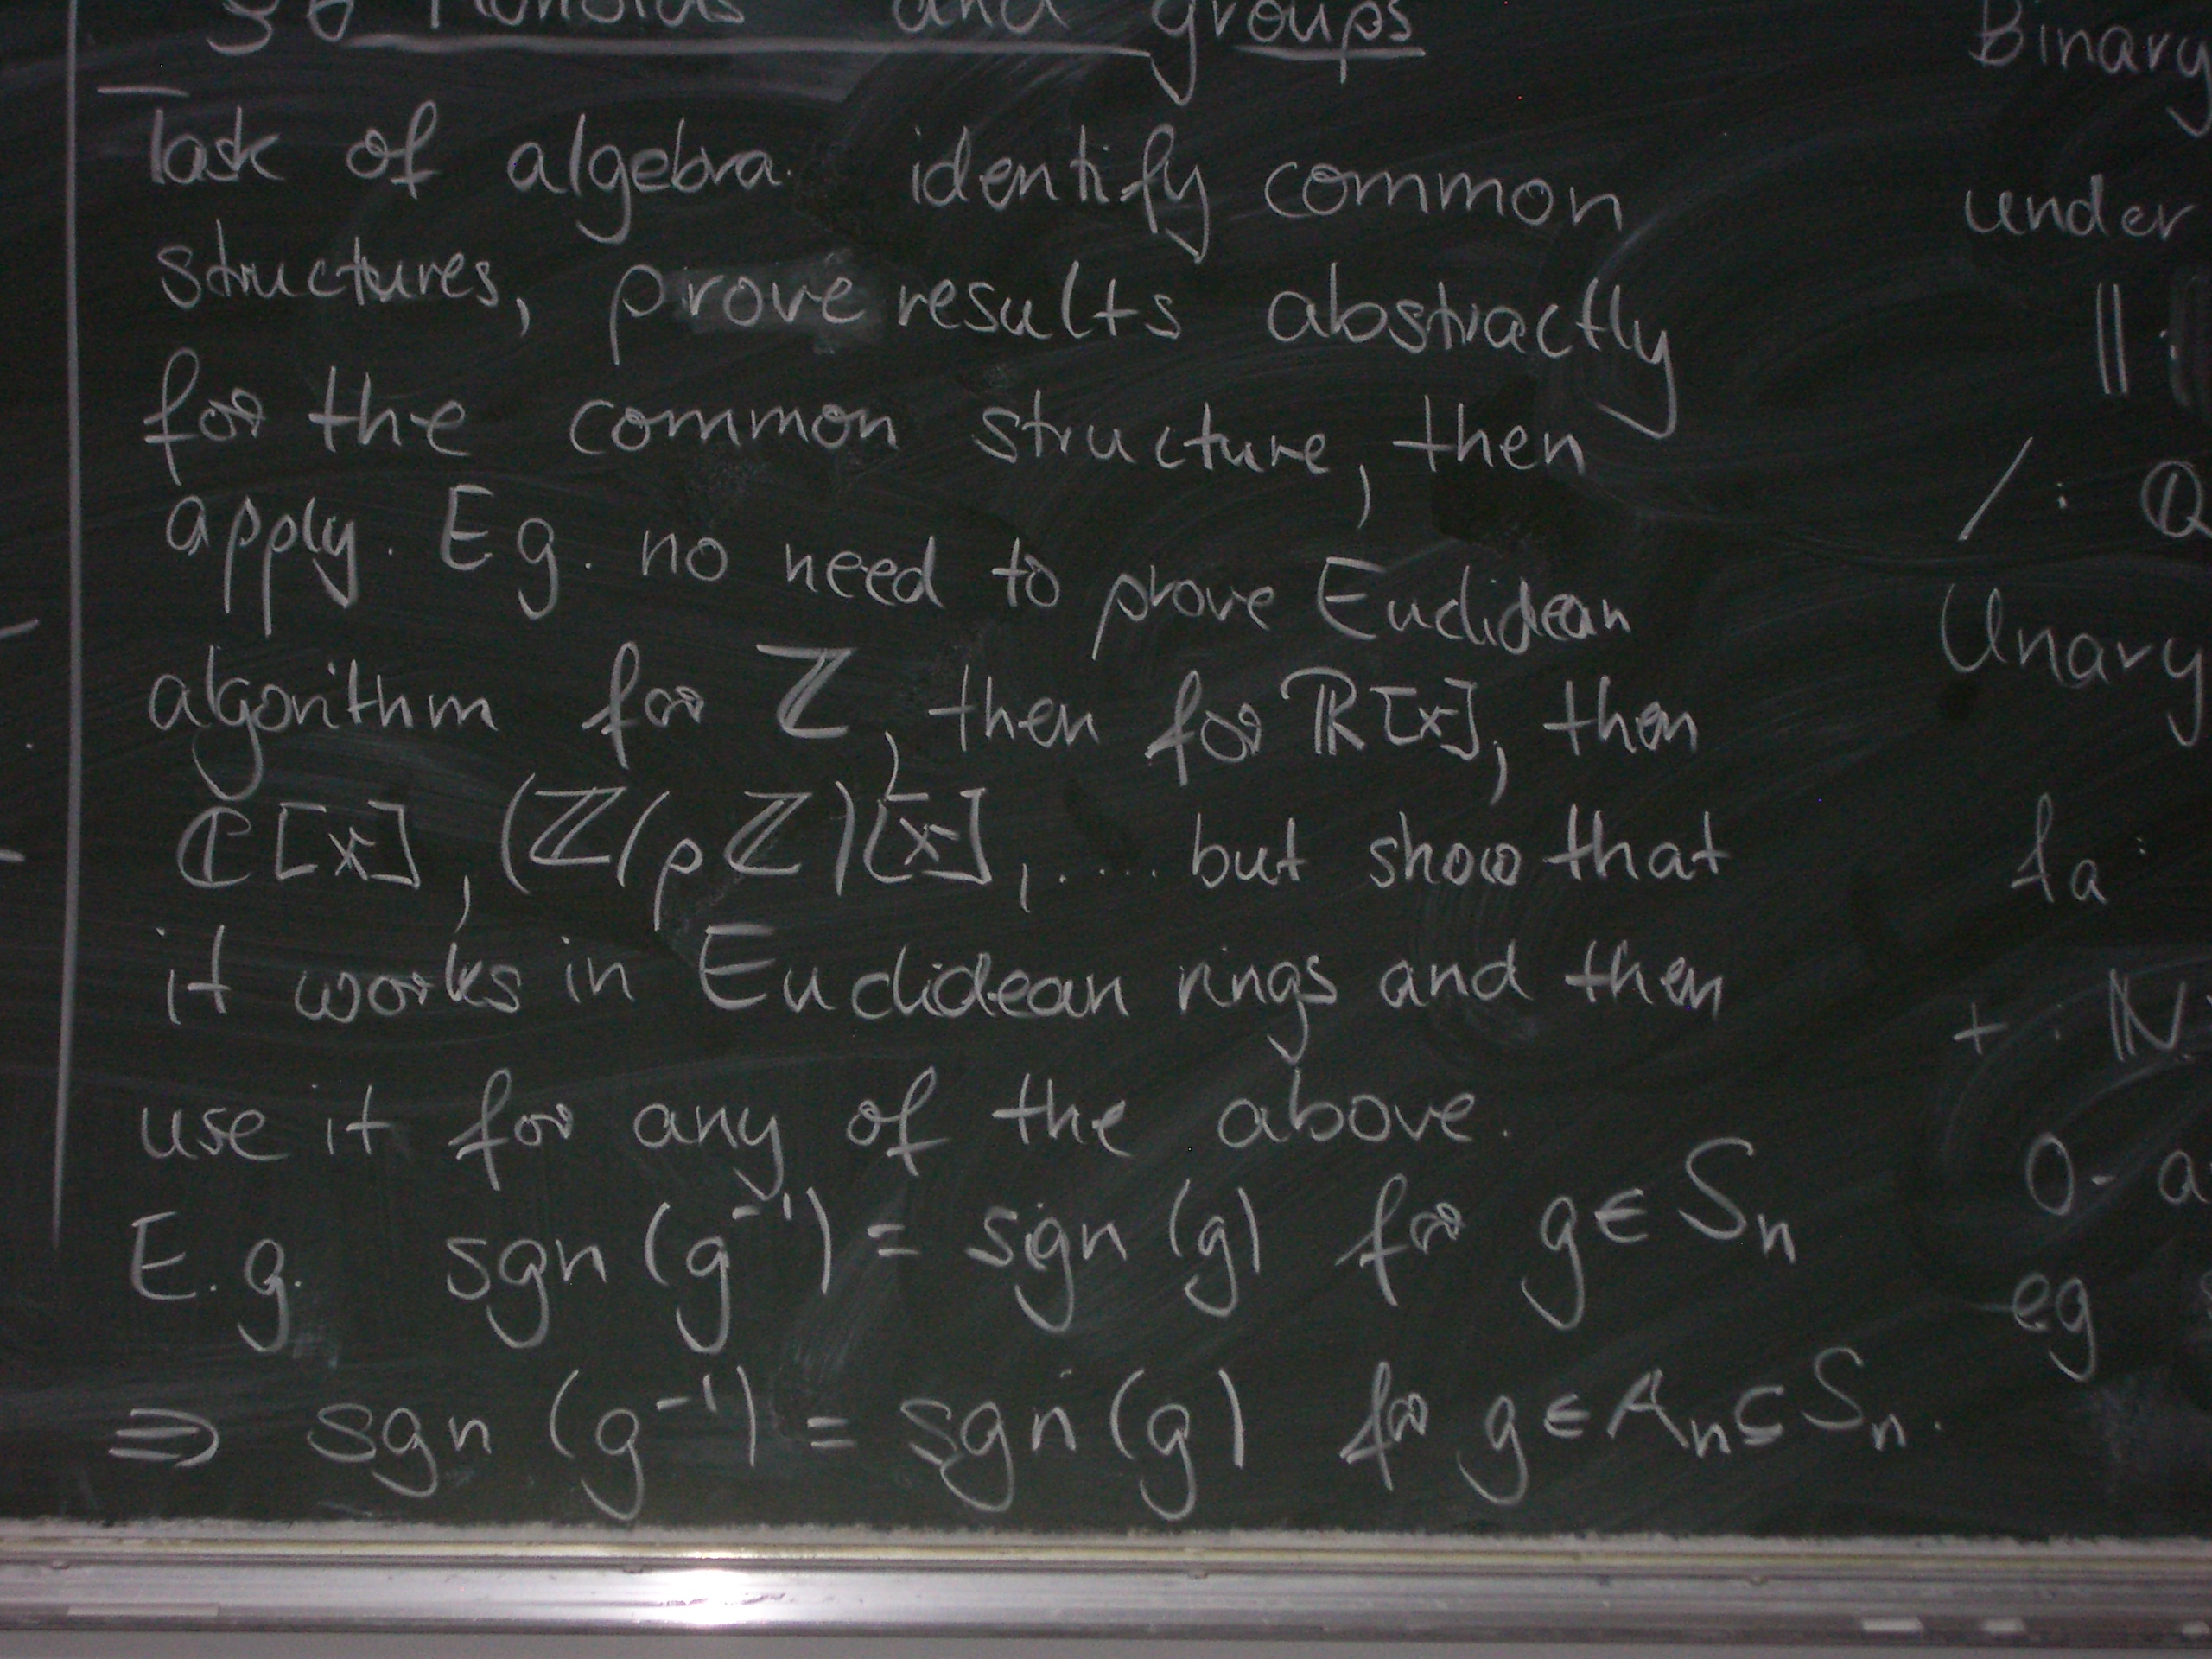 §6 Monoids and groups
Task of algebra: identify common
structures, prove results abstractly
for the common structure, then
apply. Eg. no need to prove Euclidean
algorithm for ℤ, then for ℝ[x], then
ℂ[x], (ℤ/pℤ)[x], .... but show that
it works in Euclidean rings and then
use it for any of the above.
E.g. sgn(g⁻¹) = sign(g) for g∈Sₙ
⇒ sgn(g⁻¹) = sgn(g) for g∈Aₙ⊆Sₙ.
Binary
under
|| :
/ : Q
Unary
+ : ℕ
0-a
eg